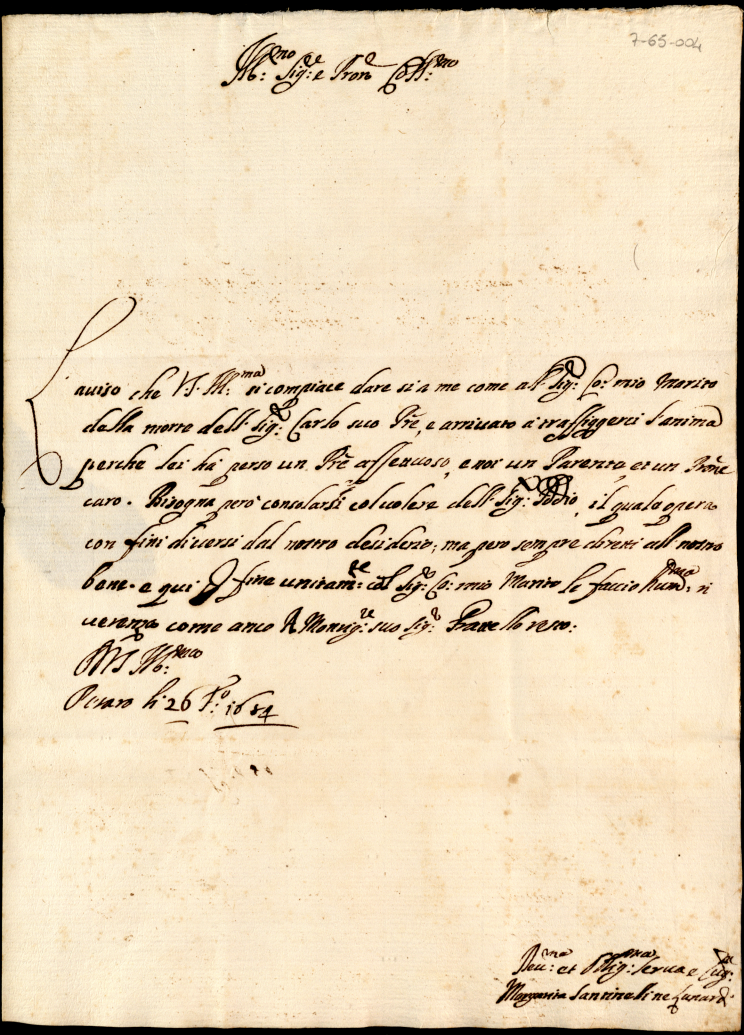 7-65-004
Ill:mo Sig:re e Pron Col:mo
L'auiso che V.S. Ill:ma si compiace dare si a me come all Sig:r Co: mio Marito
della morte dell Sig:r Carlo suo Pre, e arriuato a traffiggerci l'anima
perche lei hà perso un Pre affettuoso, e noi un Parente, et un Prone
caro. Bisogna però consolarsi col uolere dell Sig: Iddio, il quale opera
con fini diuersi dal nostro desiderio, ma pero sempre diretti all nostro
bene. e qui fine unitam:te col Sig:r Co: mio Marito le faccio hum:ma ri
uerenza come anco A Monsig:re suo Sig:r Fratello resto:
DVS Ill:ma
Pesaro li 26 1684
Deu:ma et Oblig:ma Serua e Cug:
Margarita Santinelli ne Lunardi